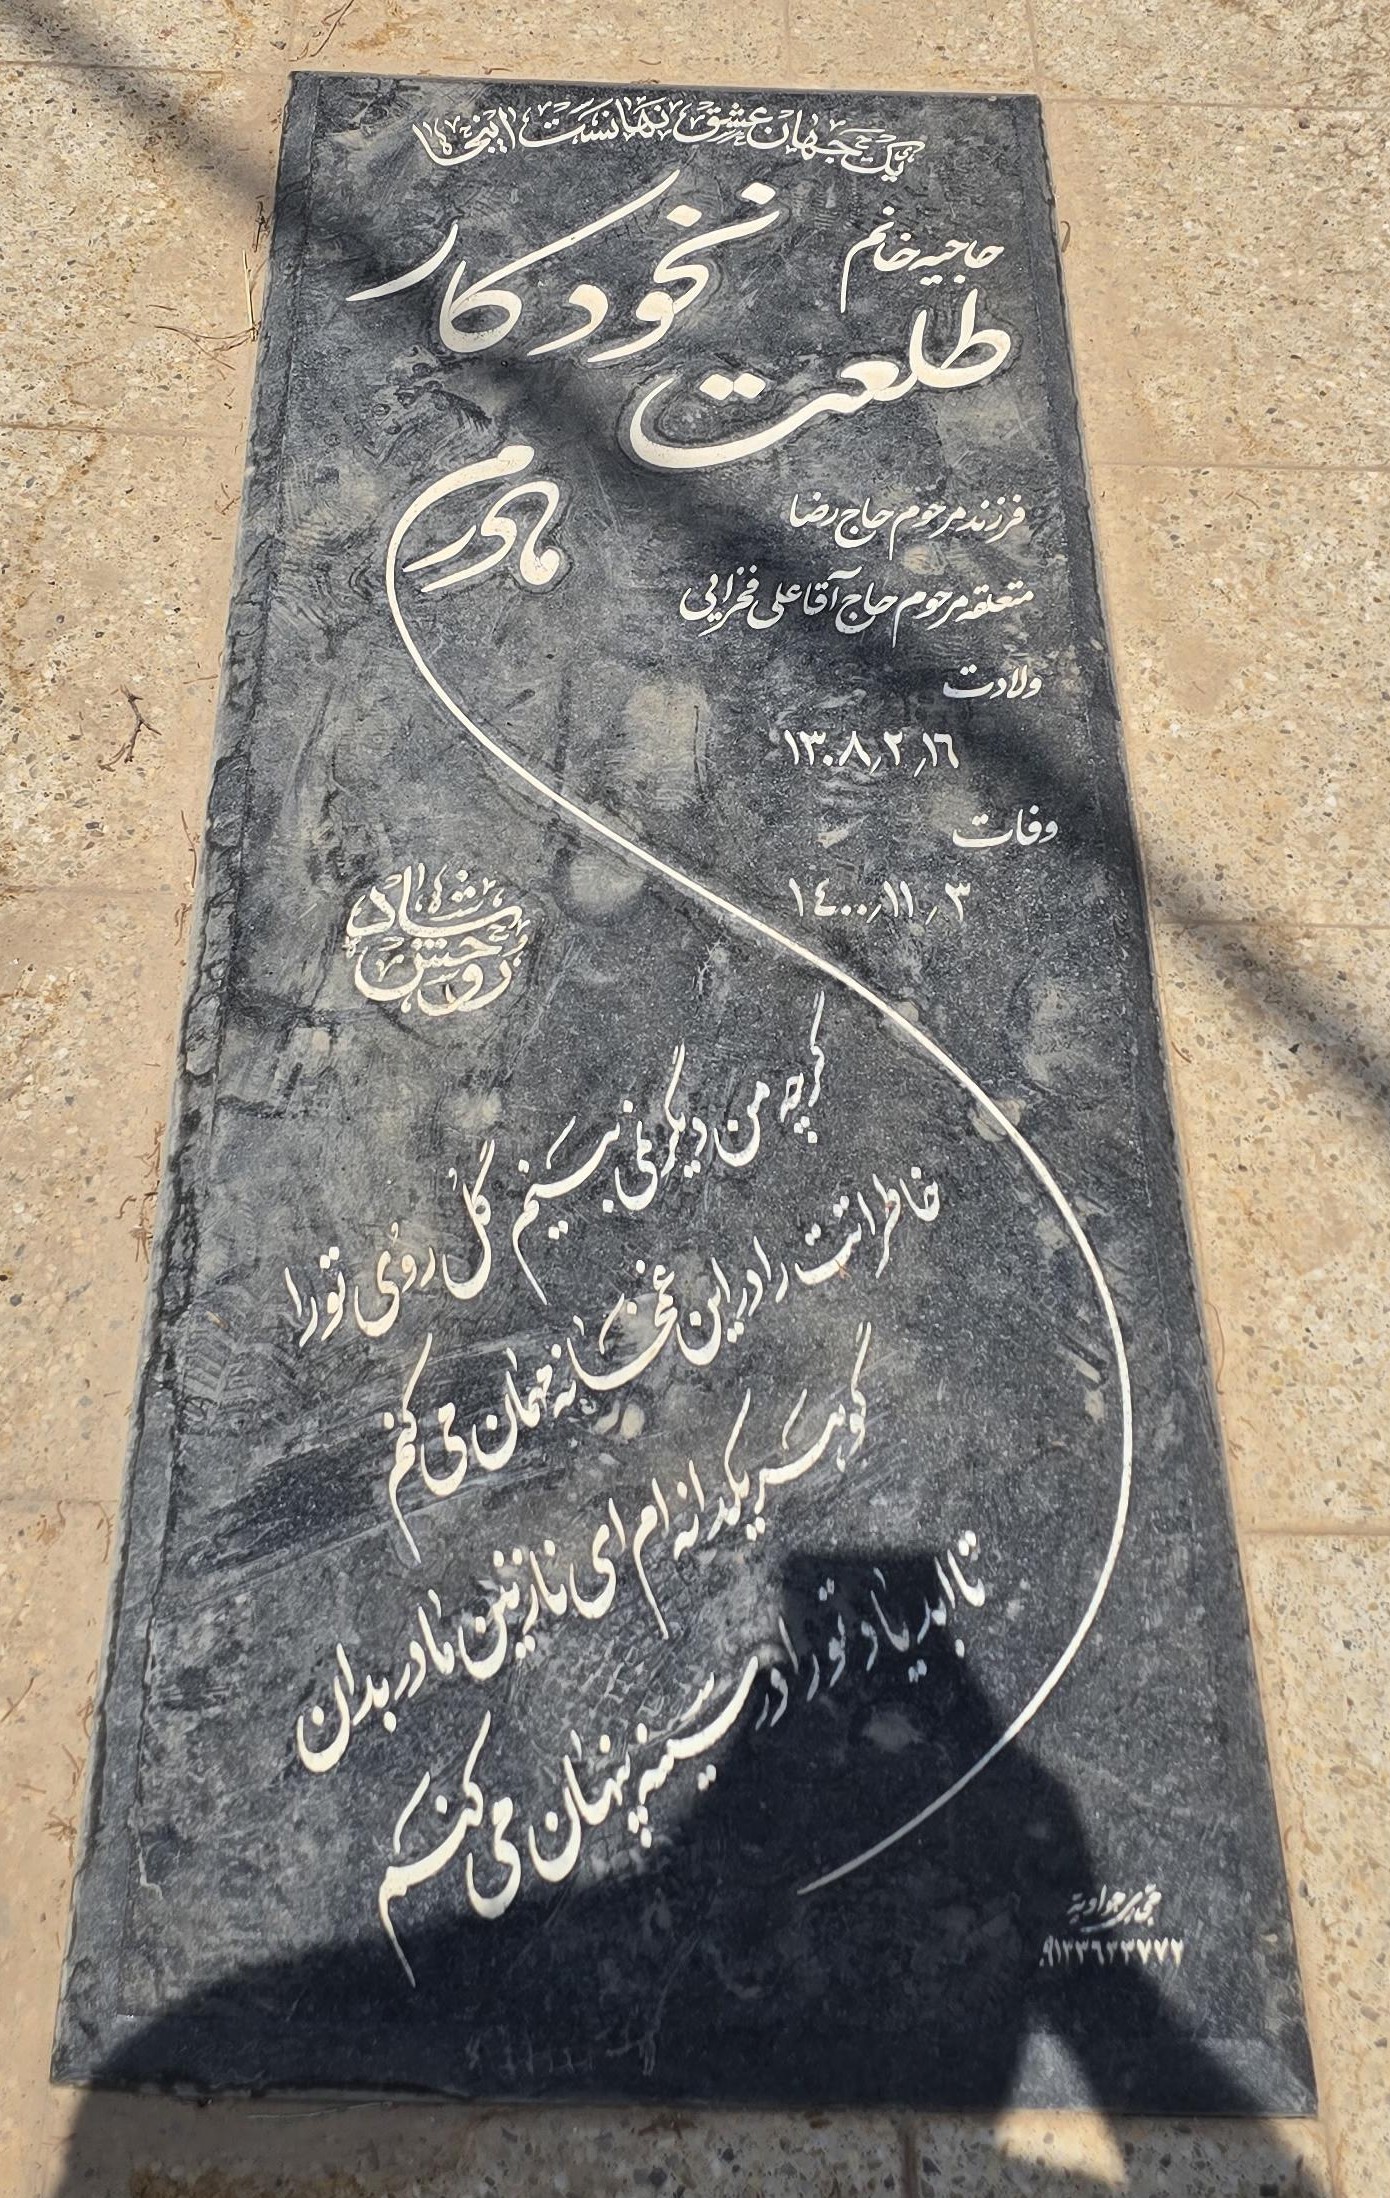 یک جهان عشق نهانست اینجا
حاجیه خانم
طلعت نخودکار
مادرم
فرزند مرحوم حاج رضا
متعلقه مرحوم حاج آقا علی فخرایی
ولادت
۱۳۰۸٫۲٫۱۶
وفات
۱۴۰۰٫۱۱٫۳
روحش شاد
گرچه من دیگر نمی بینم گل روی تو را
خاطراتت را در این غمخانه مهمان می کنم
گوهر یکدانه ام ای نازنین مادر بدان
تا ابد یاد تو را در سینه پنهان می کنم
حجاری جوادیه
۰۹۱۳۳۶۲۳۷۷۲